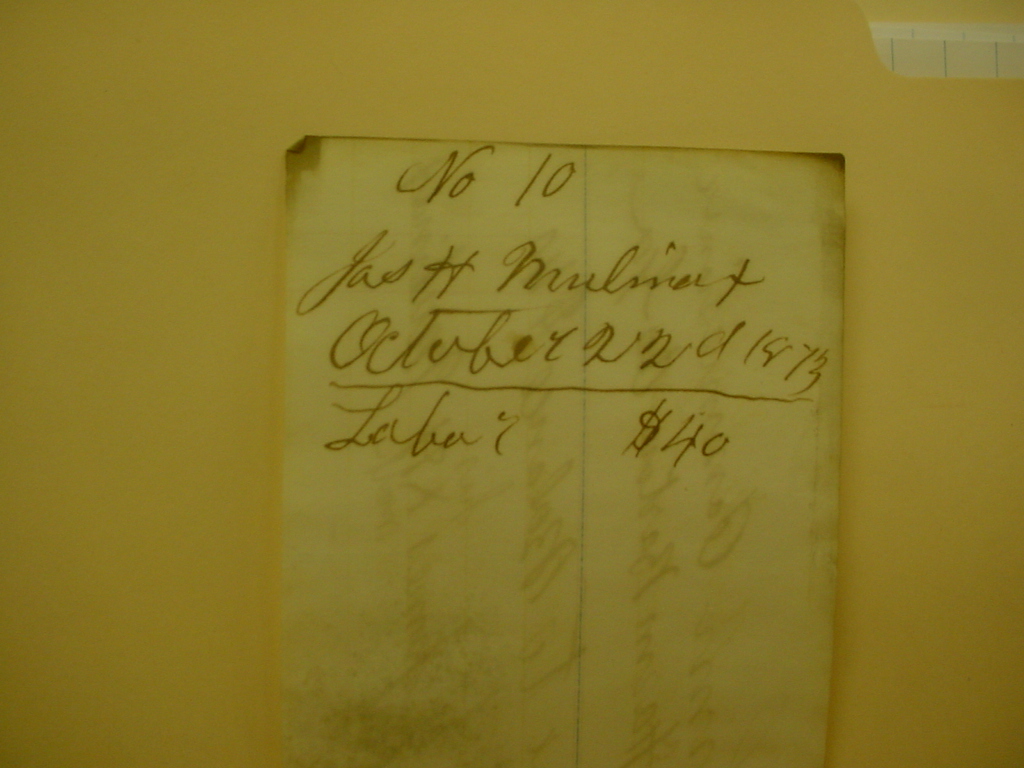 No 10
Jas H Mulinax
October 22d 1873
Labor $40